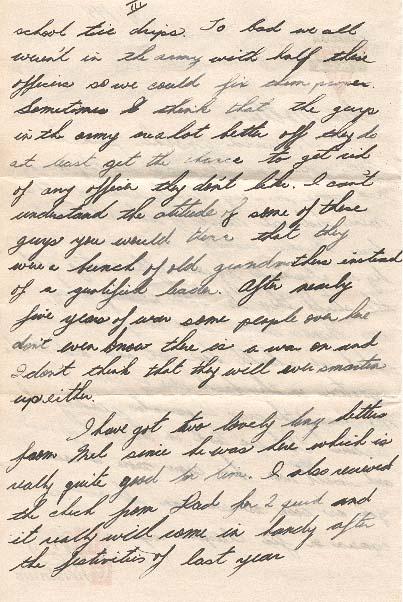 III
school tie drips. To bad we all
weren't in the army with half these
officers so we could fix them proper.
Sometimes I think that the guys
in the army are a lot better off they do
at least get the chance to get rid
of any officer they don't like. I can't
understand the atitude of some of these
guys you would think that they
were a bunch of old grandmothers instead
of a qualified leader. After nearly
five years of war some people over here
don't even know there is a war on and
I don't think that they will ever smarten
up either.
I have got two lovely long letters
from Mel since he was here which is
really quite good for him. I also received
the check from Dad for 2 quid and
it really will come in handy after
the festivities of last year